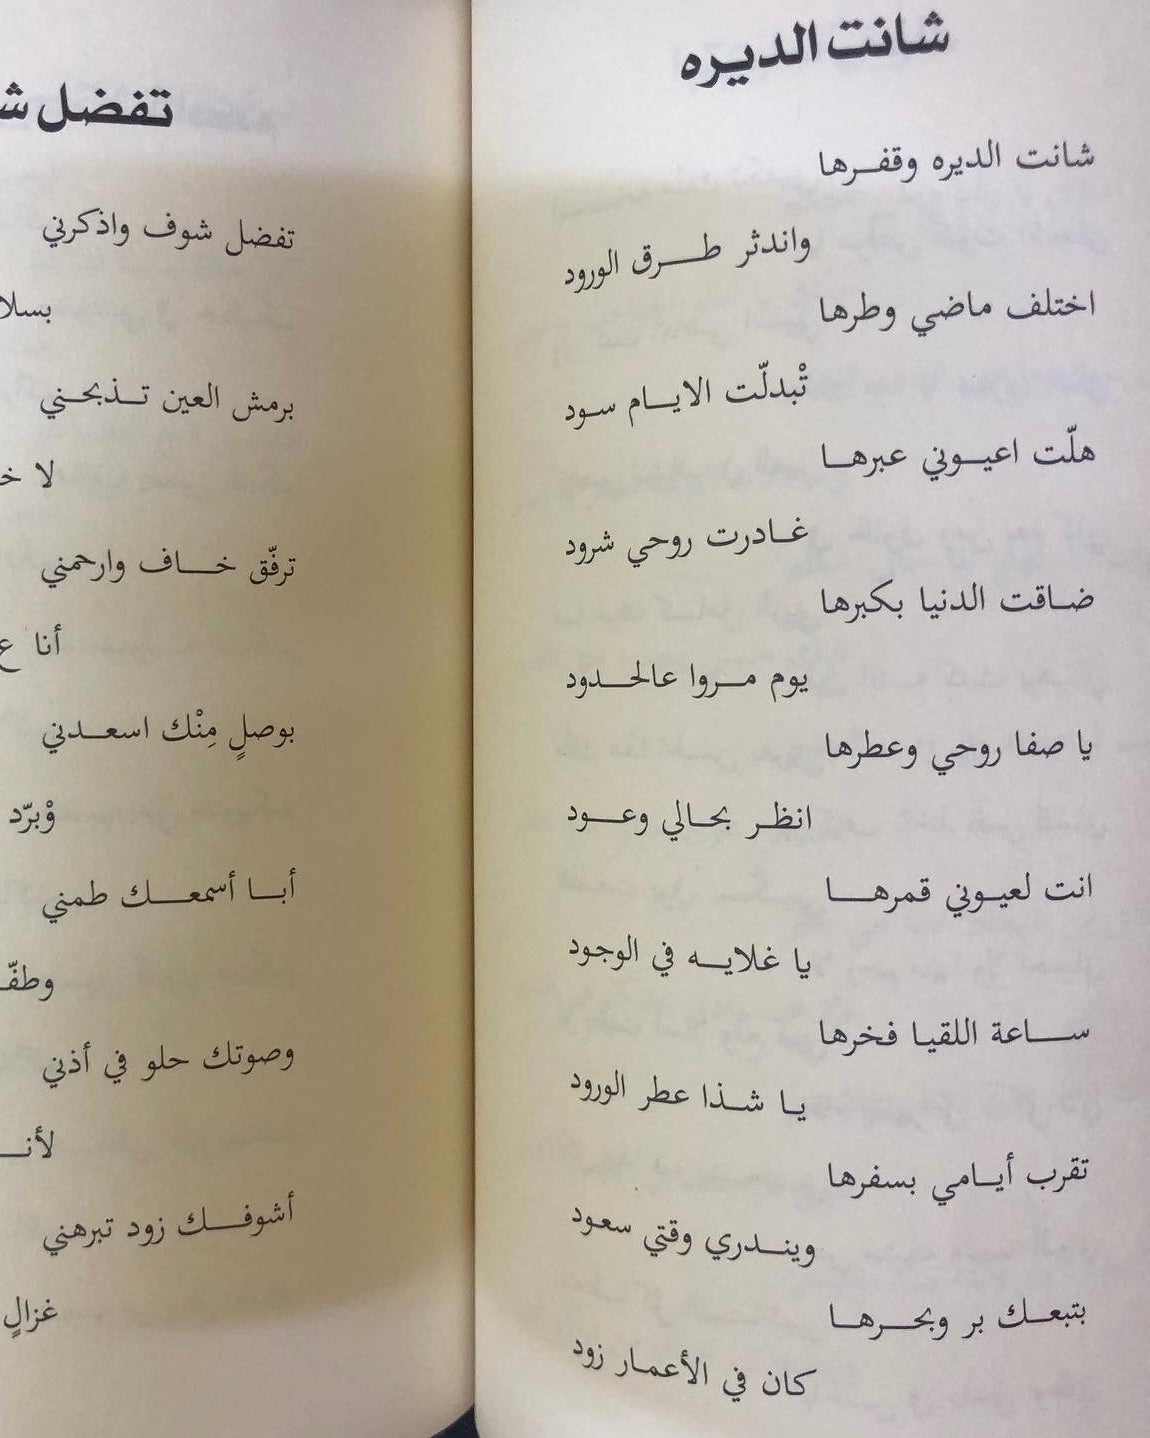 شانت الديره
شانت الديره وقفرها
واندثر طرق الورود
اختلف ماضي وطرها
تْبدلّت الايام سود
هلّت اعيوني عبرها
غادرت روحي شرود
ضاقت الدنيا بكبرها
يوم مروا عالحدود
يا صفا روحي وعطرها
انظر بحالي وعود
انت لعيوني قمرها
يا غلايه في الوجود
ساعة اللقيا فخرها
يا شذا عطر الورود
تقرب أيامي بسفرها
ويندري وقتي سعود
بتبعك بر وبحرها
كان في الأعمار زود
تفضل
تفضل شوف واذكرني
برمش العين تذبحني
لا
ترفّق خاف وارحمني
أنا
بوصلٍ مِنْك اسعدني
وْبرّد
أبا أسمعك طمني
وصوتك حلو في أذني
أشوفك زود تبرهني
غزالٍ